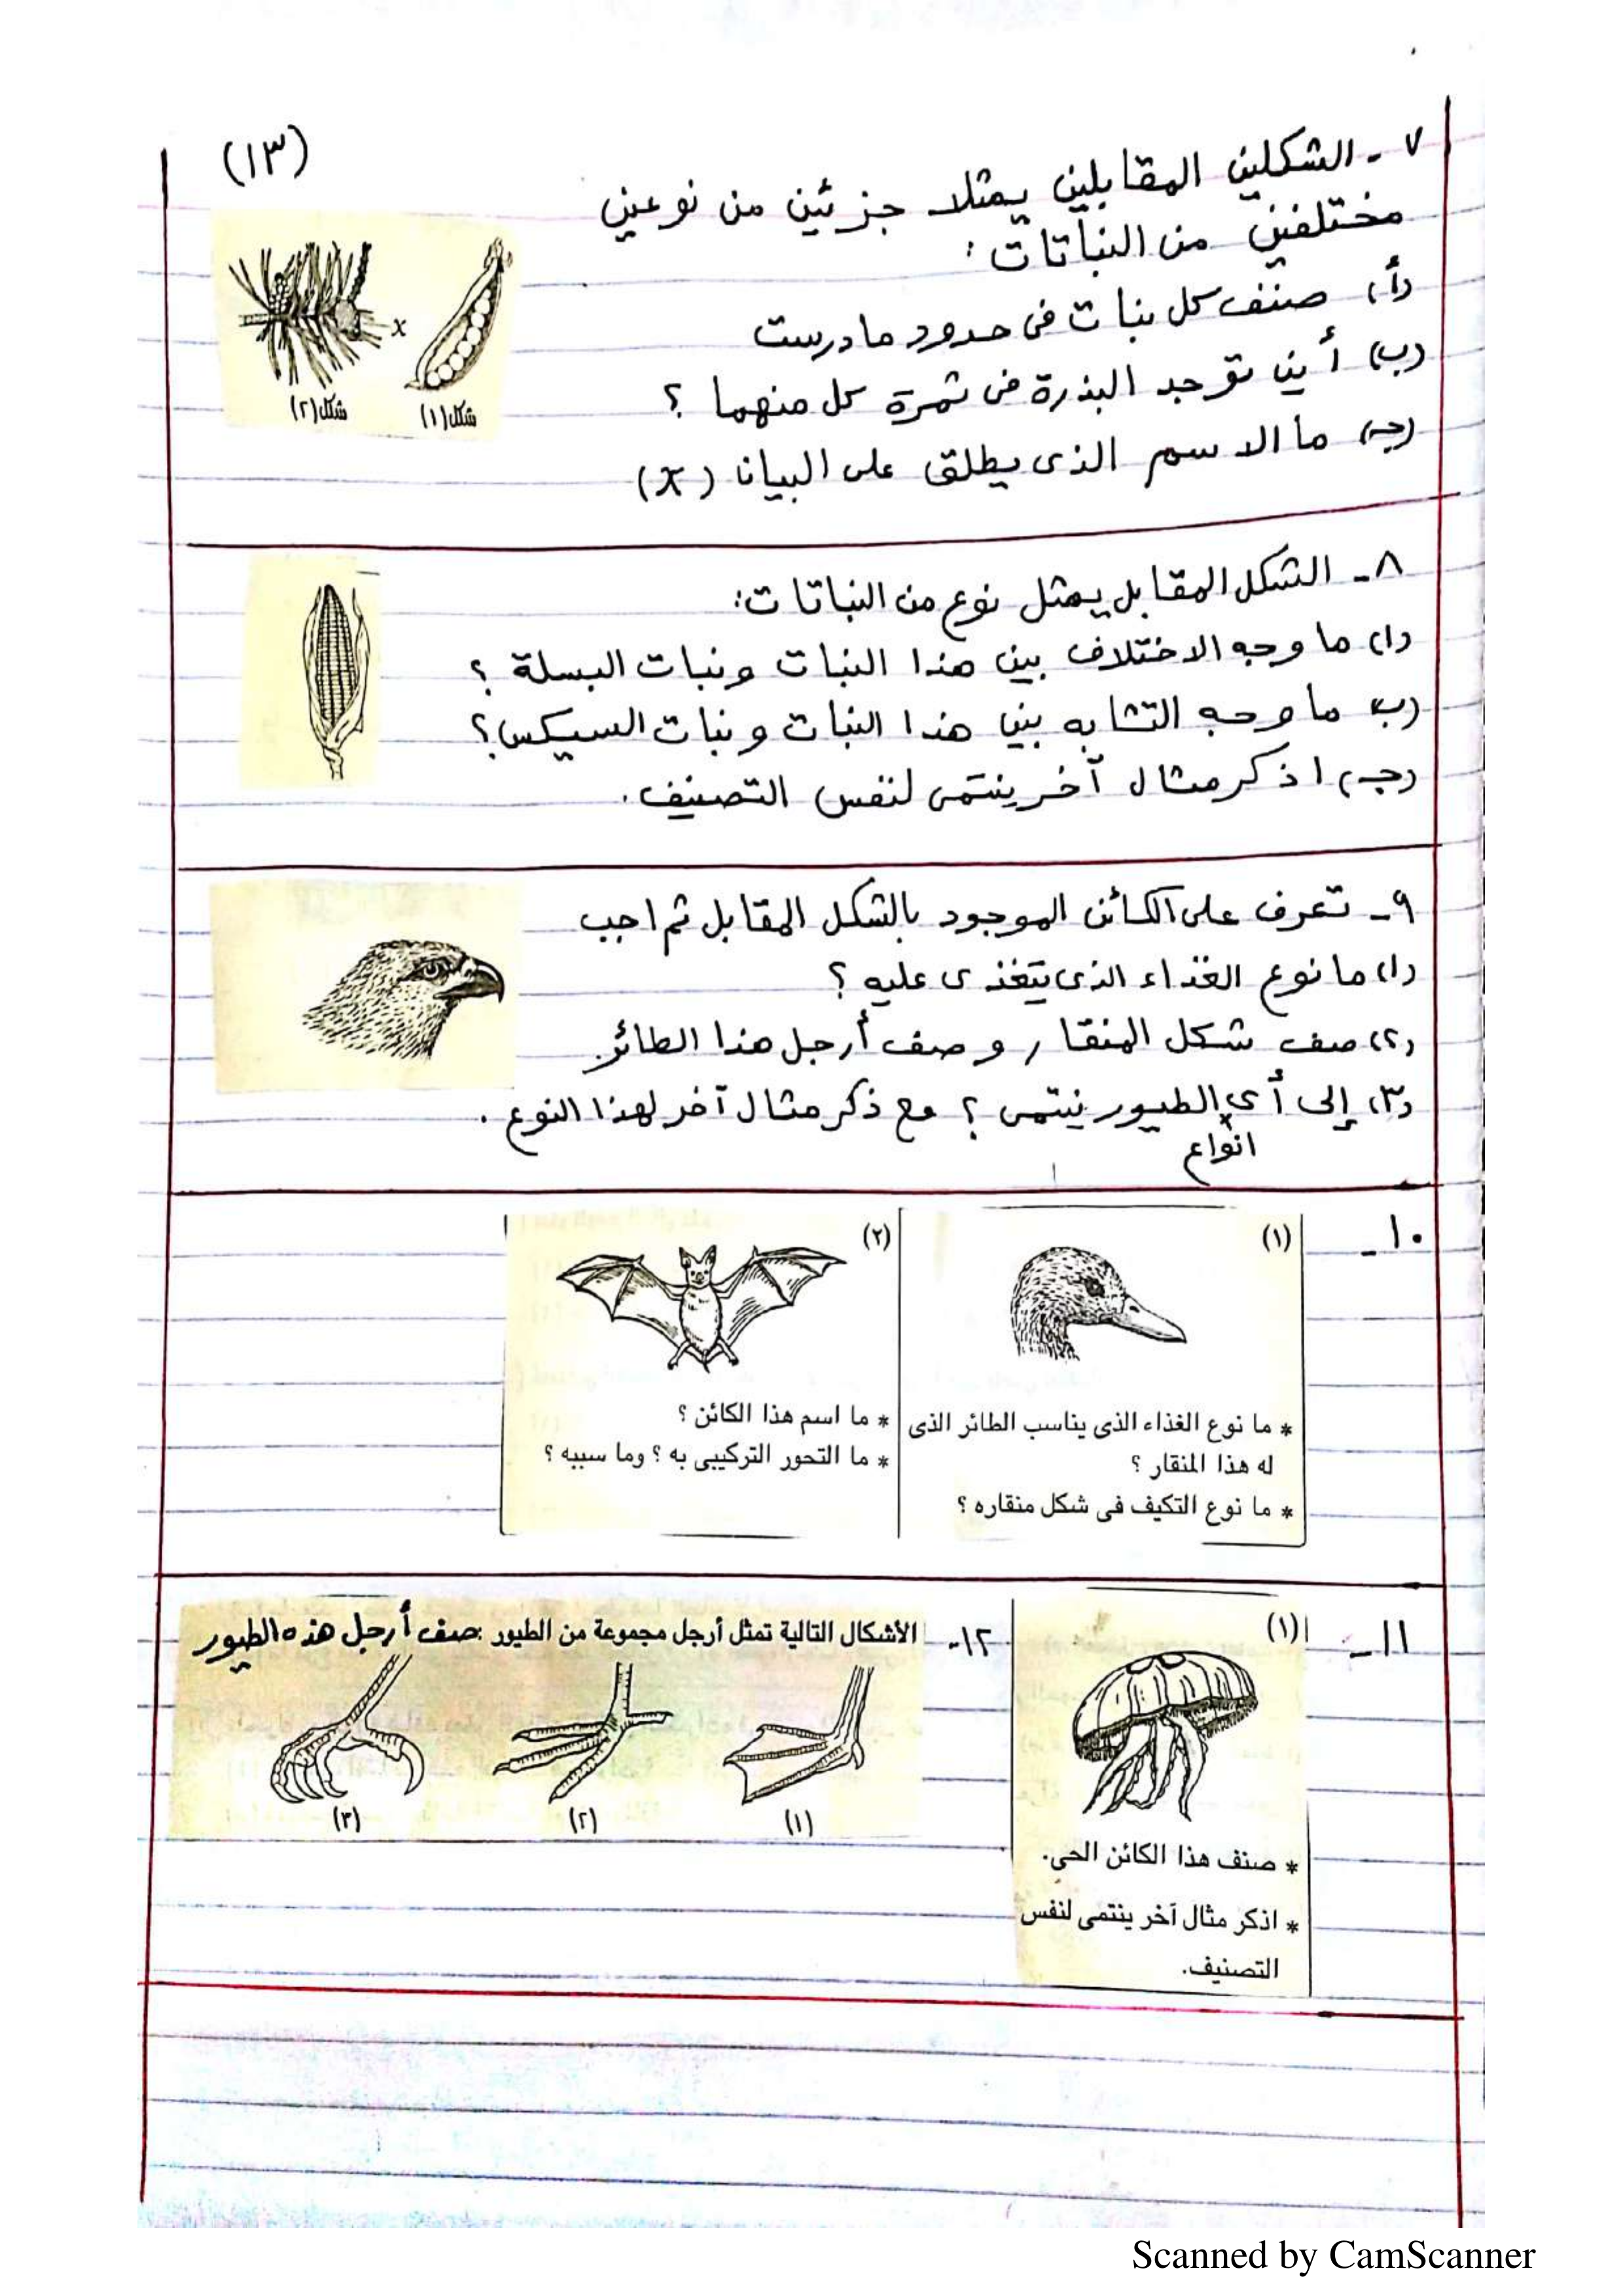 (١٣)
٧ - الشكلين المقابلين يمثلا جزئين من نوعين
مختلفين من النباتات :
(أ) صنف كل نبات فى حدود ما درست
(ب) أين توجد البذرة فى ثمرة كل منهما ؟
(جـ) ما الاسم الذى يطلق على البيان (x)
x
شكل (١)
شكل (٢)
٨ - الشكل المقابل يمثل نوع من النباتات :
(ا) ما وجه الاختلاف بين هذا النبات ونبات البسلة ؟
(ب) ما وجه التشابه بين هذا النبات ونبات السيكس ؟
(جـ) اذكر مثال آخر ينتمى لنفس التصنيف .
٩ - تعرف على الكائن الموجود بالشكل المقابل ثم اجب
(١) ما نوع الغذاء الذى يتغذى عليه ؟
(٢) صف شكل المنقار وصف أرجل هذا الطائر .
(٣) إلى أى الطيور ينتمى ؟ مع ذكر مثال آخر لهذا النوع .
انواع
١٠ -
(١)
* ما نوع الغذاء الذى يناسب الطائر الذى
له هذا المنقار ؟
* ما نوع التكيف فى شكل منقاره ؟
(٢)
* ما اسم هذا الكائن ؟
* ما التحور التركيبى به ؟ وما سببه ؟
١١ -
(١)
* صنف هذا الكائن الحى.
* اذكر مثال آخر ينتمى لنفس
التصنيف.
١٢- الأشكال التالية تمثل أرجل مجموعة من الطيور : صف أرجل هذه الطيور
(١)
(٢)
(٣)
Scanned by CamScanner